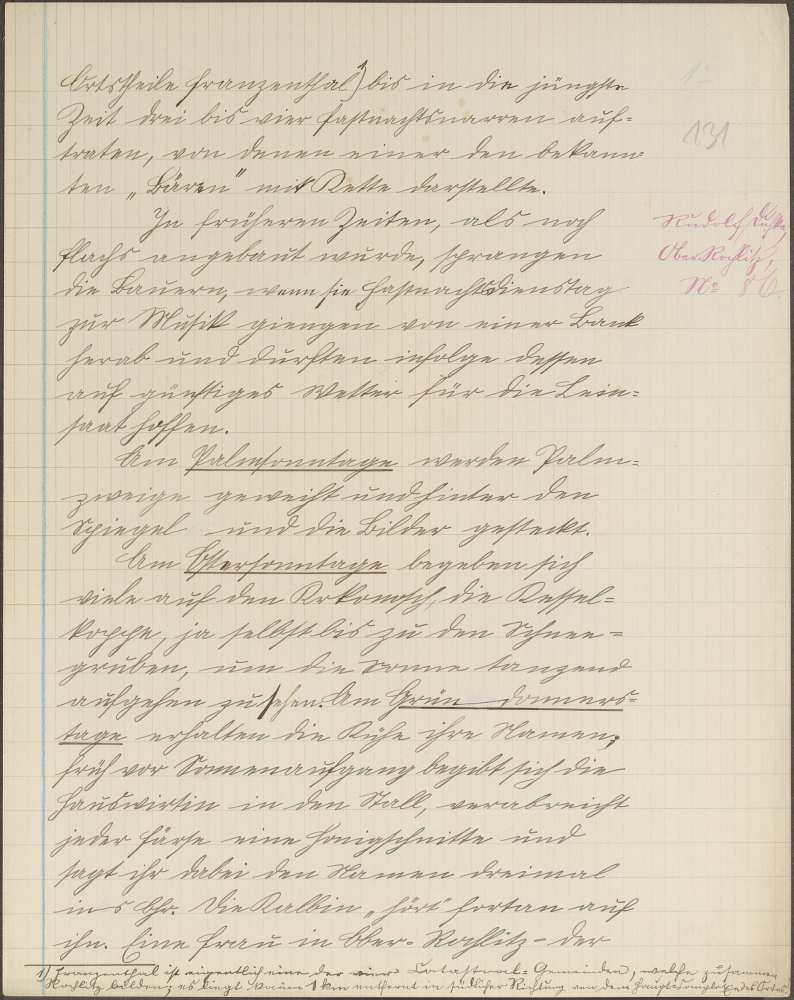 Ortstheile Franzenthal 1) bis in die jüngste
Zeit drei bis vier Fastnachtsnarren auf=
traten, von denen einer den bekann=
ten „Bären" mit Kette darstellte.
In früheren Zeiten, als noch
Flachs angebaut wurde, sprangen
die Bauern, wenn sie Fastnachtsdienstag
zur Musik giengen von einer Bank
herab und durften infolge dessen
auf günstiges Wetter für die Lein=
saat hoffen.
Am Palmsonntage werden Palm=
zweige geweiht und hinter den
Spiegel und die Bilder gesteckt.
Am Ostersonntage begeben sich
viele auf den Krkonosch, die Kessel=
koppe, ja selbst bis zu den Schnee=
gruben, um die Sonne tanzend
aufgehen zu sehen. Am Grün donners=
tage erhalten die Kühe ihre Namen;
früh vor Sonnenaufgang begibt sich die
Hauswirtin in den Stall, verabreicht
jeder Färse eine Honigschnitte und
sagt ihr dabei den Namen dreimal
ins Ohr. Die Kalbin „hört" fortan auf
ihn. Eine Frau in Ober-Rochlitz - der
1) Franzenthal ist eigentlich eine der vier Catastral-Gemeinden, welche zusammen
Rochlitz bilden; es liegt kaum 1 km entfernt in südlicher Richtung von dem Hauptcomplexe des Ortes.
131
Rudolf
Ober Rochlitz,
No 86.